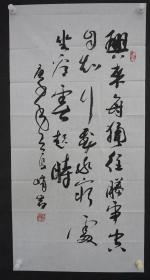 興來每獨往勝事空
自知行到水窮處
坐看雲起時